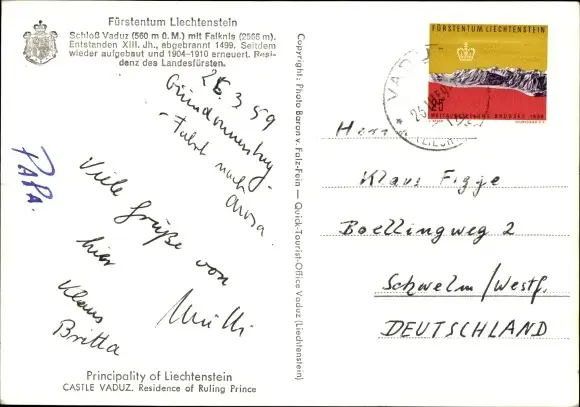 Fürstentum Liechtenstein
Schloß Vaduz (560 m ü. M.) mit Falknis (2566 m).
Entstanden XIII. Jh., abgebrannt 1499. Seitdem
wieder aufgebaut und 1904–1910 erneuert. Resi-
denz des Landesfürsten.
26.3.59
Gründonnerstag -
Fahrt nach
Arosa.
PAPA.
Viele Grüße von
hier
Klaus
Britta
Mutti
Principality of Liechtenstein
CASTLE VADUZ. Residence of Ruling Prince
Copyright: Photo Baron v. Falz-Fein — Quick-Tourist-Office Vaduz (Liechtenstein)
FÜRSTENTUM LIECHTENSTEIN
25
WELTAUSSTELLUNG BRÜSSEL 1958
VADUZ
Herrn
Klaus Figge
Boellingweg 2
Schwelm/Westf.
DEUTSCHLAND